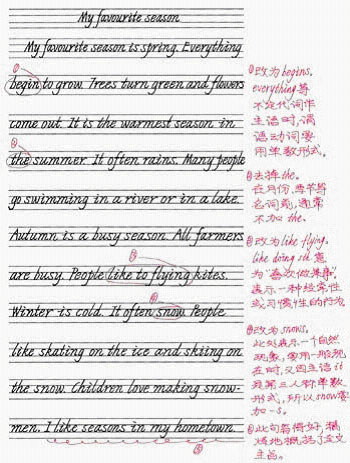 My favourite season
My favourite season is spring. Everything
begin to grow. Trees turn green and flowers
come out. It is the warmest season in
the summer. It often rains. Many people
go swimming in a river or in a lake.
Autumn is a busy season. All farmers
are busy. People like to flying kites.
Winter is cold. It often snow. People
like skating on the ice and skiing on
the snow. Children love making snow-
men. I like seasons in my hometown.
①改为begins.
everything等
不定代词作
主语时,谓
语动词要
用单数形式。
②去掉the.
在月份、季节等
名词前,通常
不加the.
③改为like flying.
like doing sth.意
为"喜欢做某事",
表示一种经常性
或习惯性的行为
④改为snows.
此处表示一个自然
现象,要用一般现
在时,又因主语it
是第三人称单数
形式,所以snow要
加-s.
⑤此句写得好,概
括地概括了全文
主旨。